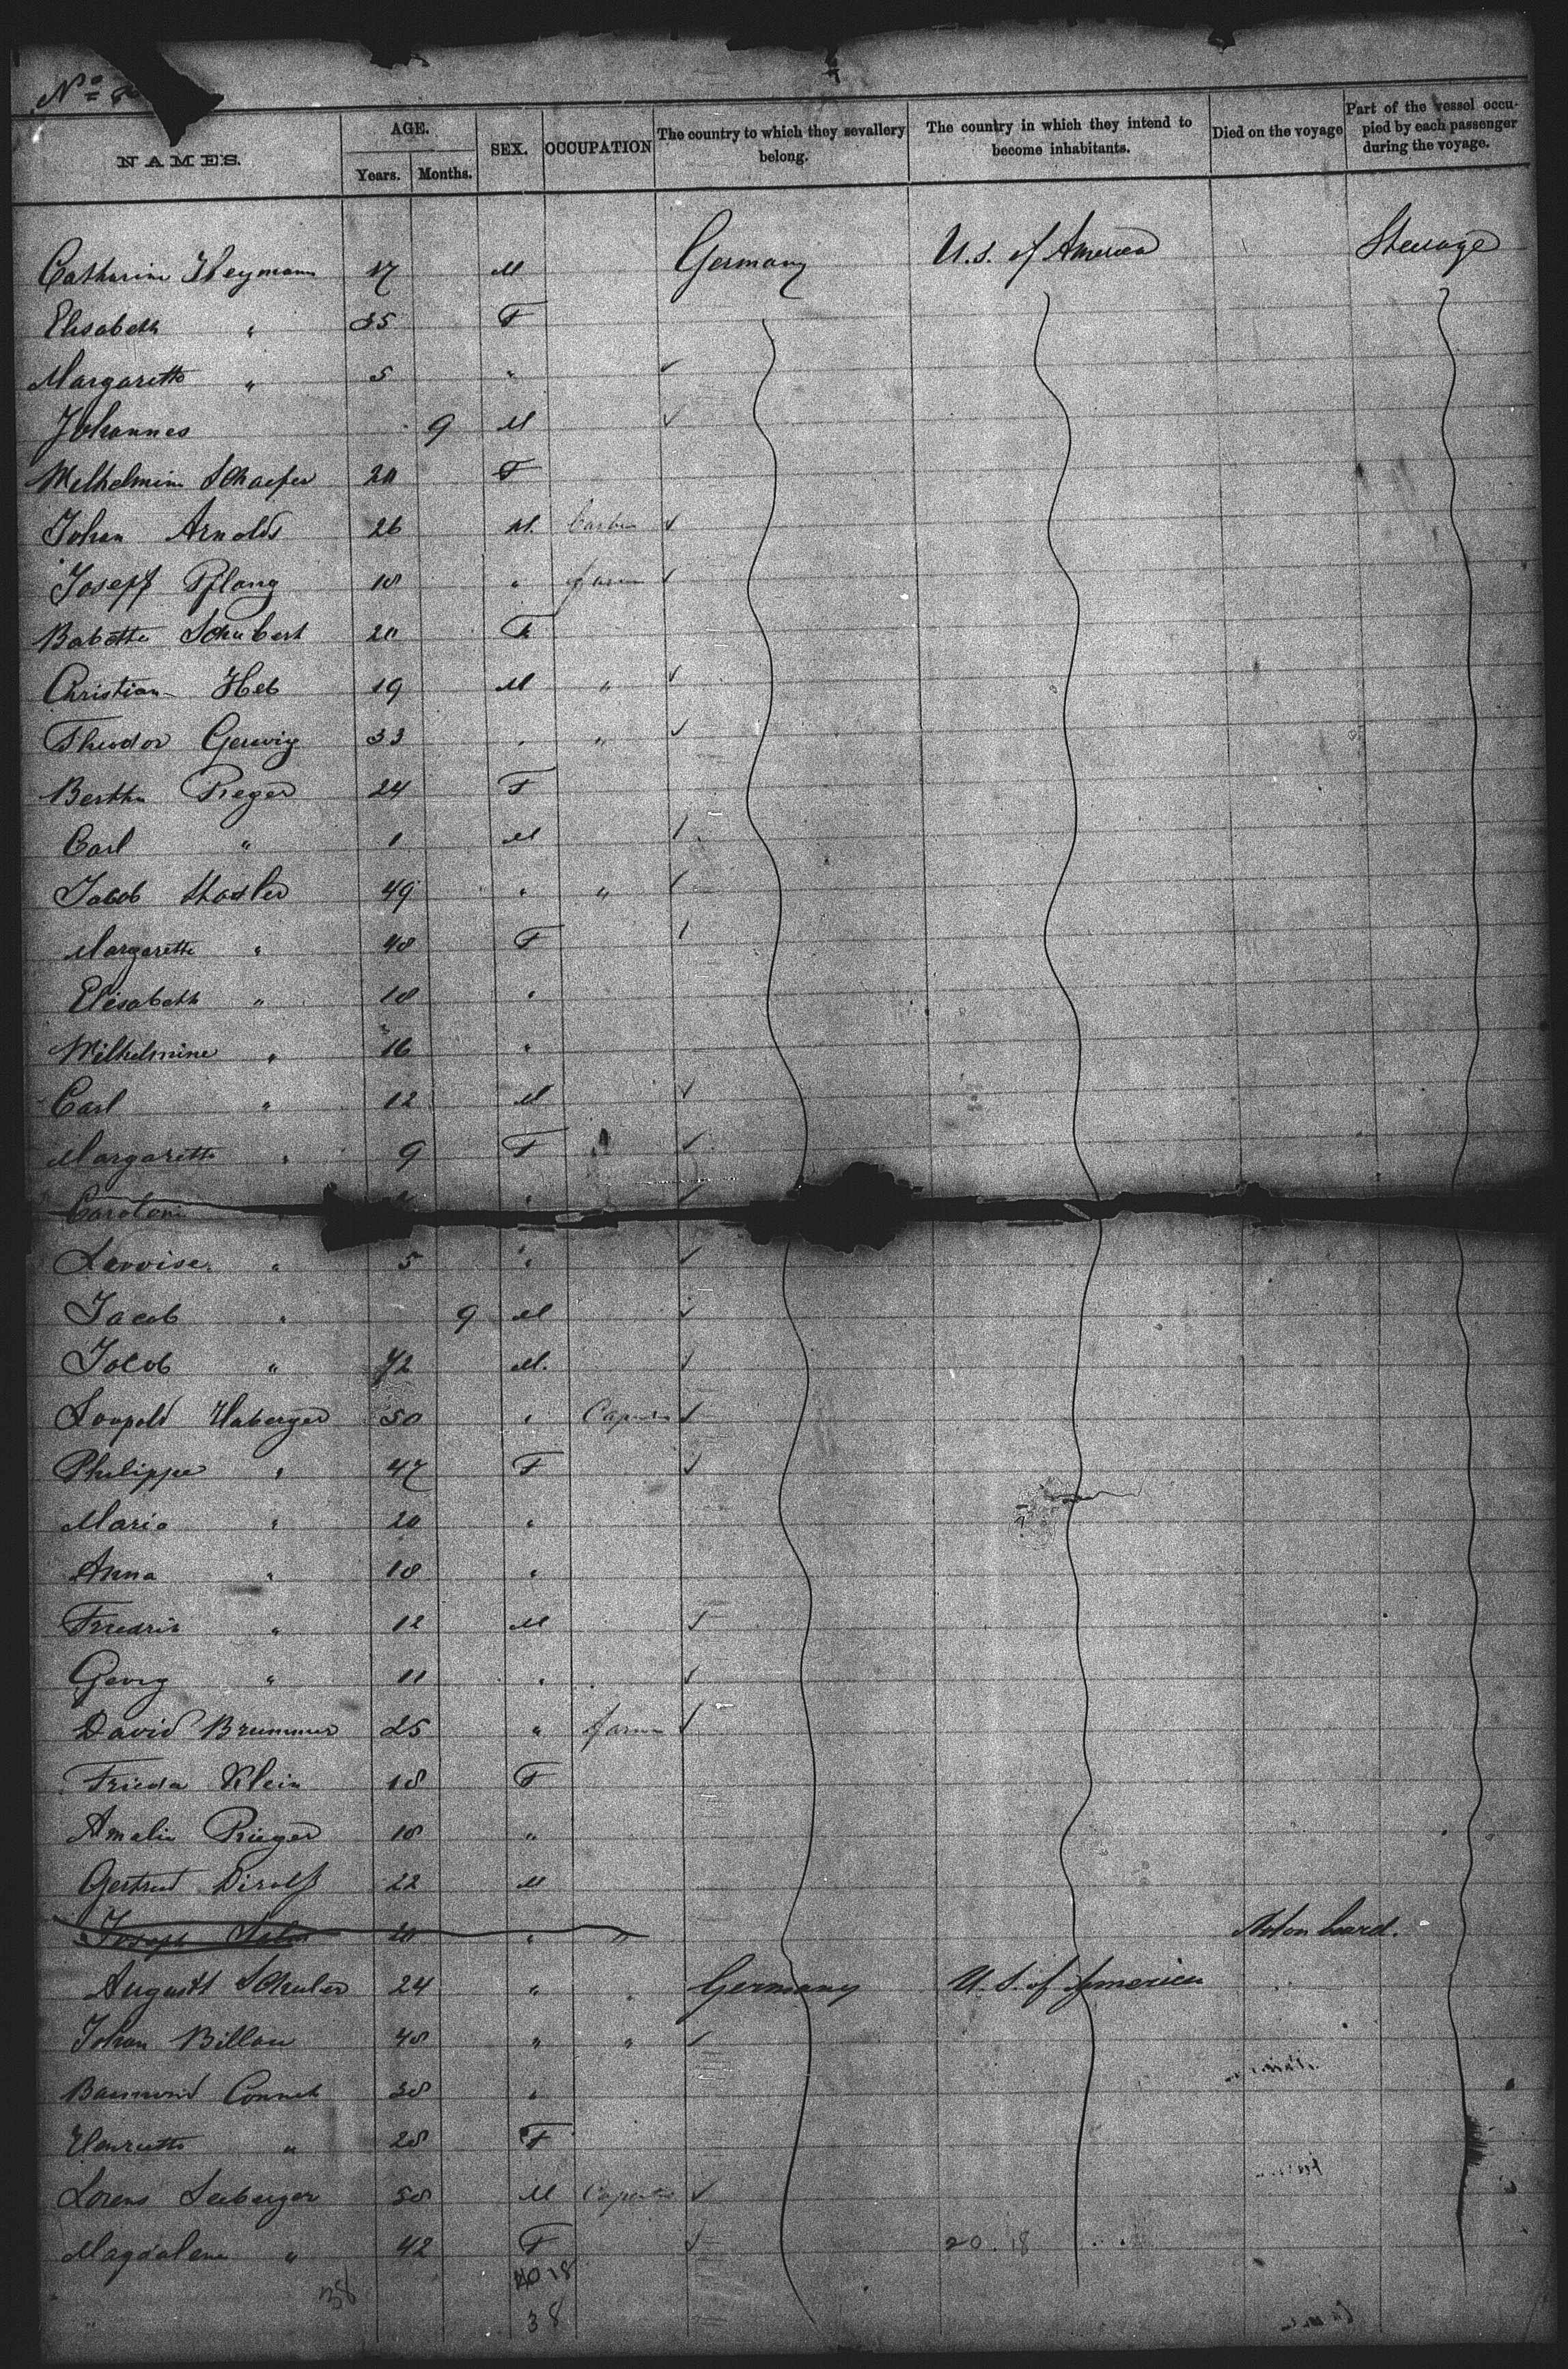 No
NAMES. AGE. Years. Months. SEX. OCCUPATION The country to which they sevallery belong. The country in which they intend to become inhabitants. Died on the voyage Part of the vessel occupied by each passenger during the voyage.
Catharine Heymann M Germany U.S. of America Steerage
Elisabeth " 35 F
Margarette " 5 "
Johannes 9 M
Wilhelmine Schaefer 20 F
Johan Arnolds 26 M.
Joseff Pflang 18 " farm
Babette Schubert 20
Christian Heb 19 M "
Theodor Gerwig 33 " "
Bertha Rieger 24 F
Carl " 1 M
Jacob Stadler 49 " "
Margarette " 48 F
Elisabeth " 18 "
Wilhelmine " 16 "
Carl " 12 M
Margarette " 9 F
Caroline "
Lovvise " 5 "
Jacob " 9 M
Jacob " 72 M.
Leopold 50 "
Philippe " 47 F
Maria " 20 "
Anna " 18 "
Friedrich " 12 M
Georg " 11 "
David Brummer 25 " farm
Frieda Klein 18 F
Amalie Rieger 18 "
Gertrud 22 M
Joseph " " Not on board.
August Schuler 24 " " Germany U.S. of America
Johan Billau 48 " "
Connet 38 "
Henriette " 28 F
Lorens Seeberger 58 M
Magdalene " 42 F 20.18
38 20 18
38